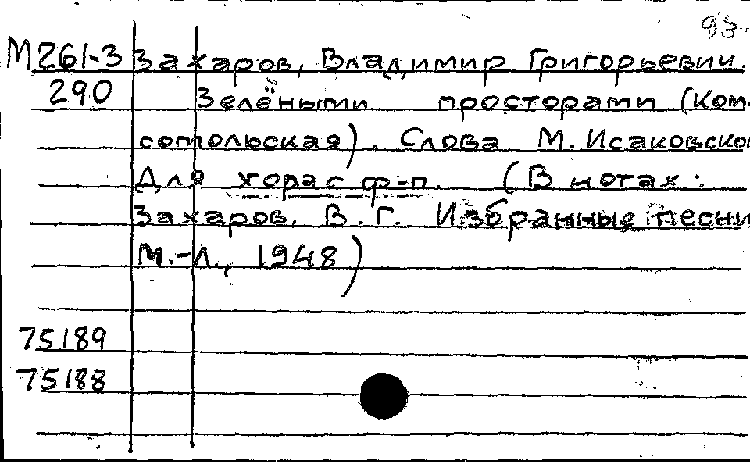 93.
М261-3 Захаров, Владимир Григорьевич.
290 Зелёными просторами (Ком-
сомольская). Слова М. Исаковско
Для хора с ф-п. (В нотах:
Захаров, В. Г. Избранные песни
М.-Л., 1948)
75189
75188